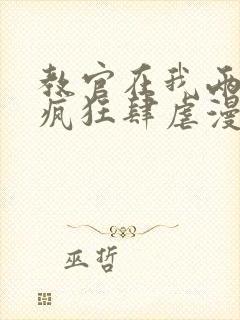 教官在我两
疯狂肆虐漫
巫哲